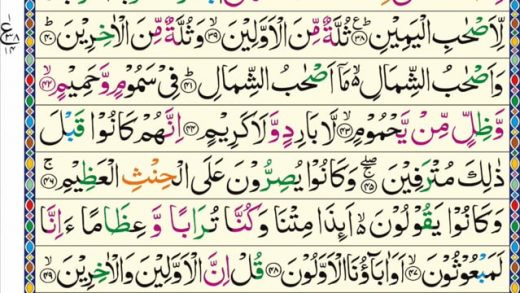 لِّاَصْحٰبِ الْيَمِيْنِ ﴿۳۸﴾ ثُلَّةٌ مِّنَ الْاَوَّلِيْنَ ﴿۳۹﴾ وَثُلَّةٌ مِّنَ الْاٰخِرِيْنَ ﴿۴۰﴾
وَاَصْحٰبُ الشِّمَالِ ۙ مَاۤ اَصْحٰبُ الشِّمَالِ ﴿۴۱﴾ فِيْ سَمُوْمٍ وَّحَمِيْمٍ ﴿۴۲﴾
وَّظِلٍّ مِّنْ يَّحْمُوْمٍ ﴿۴۳﴾ لَّا بَارِدٍ وَّلَا كَرِيْمٍ ﴿۴۴﴾ اِنَّهُمْ كَانُوْا قَبْلَ
ذٰلِكَ مُتْرَفِيْنَ ﴿۴۵﴾ وَكَانُوْا يُصِرُّوْنَ عَلَى الْحِنْثِ الْعَظِيْمِ ﴿۴۶﴾
وَكَانُوْا يَقُوْلُوْنَ ۙ اَىِٕذَا مِتْنَا وَكُنَّا تُرَابًا وَّعِظَامًا ءَاِنَّا
لَمَبْعُوْثُوْنَ ﴿۴۷﴾ اَوَاٰبَآؤُنَا الْاَوَّلُوْنَ ﴿۴۸﴾ قُلْ اِنَّ الْاَوَّلِيْنَ وَالْاٰخِرِيْنَ ﴿۴۹﴾